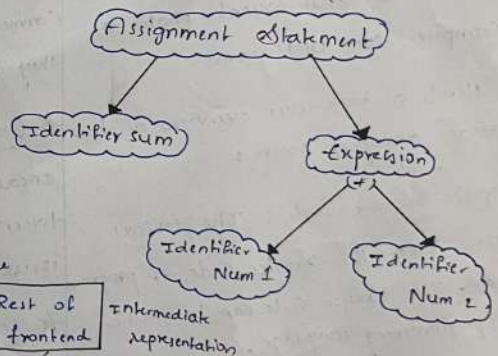 Assignment Statement
Identifier sum
Expression
(+)
Identifier
Num 1
Identifier
Num 2
Rest of
frontend
Intermediate
representation